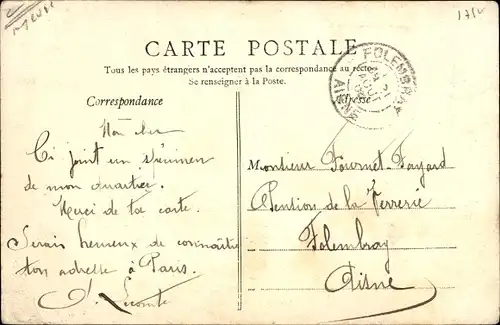 1750
CARTE POSTALE
Tous les pays étrangers n'acceptent pas la correspondance au recto
Se renseigner à la Poste.
FOLEMBRAY
AISNE
Correspondance
Adresse
Mon cher
Ci joint un spécimen
de mon quartier.
Merci de ta carte.
Serais heureux de connaître
ton adresse à Paris.
Lecomte
Monsieur Fournet-Fayard
Pension de la Verrerie
Folembray
Aisne